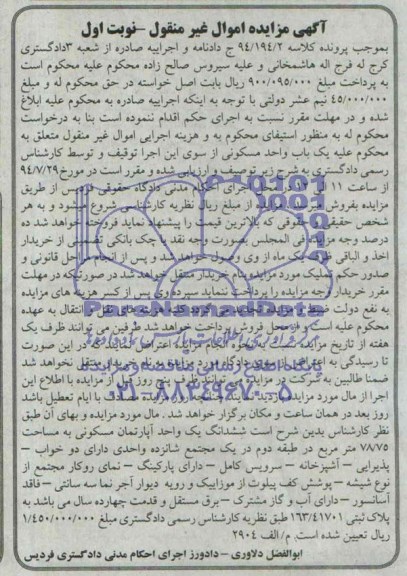 آگهی مزایده اموال غیر منقول –نوبت اول
بموجب پرونده کلاسه ۹۴/۱۹۴/۲ ج دادنامه و اجراییه صادره از شعبه ۳دادگستری
کرج له فرج اله هاشمخانی و علیه سیروس صالح زاده محکوم علیه محکوم است
به پرداخت مبلغ ۹۰۰/۰۹۵/۰۰۰ ریال بابت اصل خواسته در حق محکوم له و مبلغ
۴۵/۰۰۰/۰۰۰ نیم عشر دولتی با توجه به اینکه اجراییه صادره به محکوم علیه ابلاغ
شده و در مهلت مقرر نسبت به اجرای حکم اقدام ننموده است بنا به درخواست
محکوم له به منظور استیفای محکوم به و هزینه اجرایی اموال غیر منقول متعلق به
محکوم علیه یک باب واحد مسکونی از سوی این اجرا توقیف و توسط کارشناس
رسمی دادگستری به شرح زیر توصیف و ارزیابی شده و مقرر است در مورخ ۹۴/۷/۲۹
از ساعت ۱۱ اجرای احکام مدنی دادگاه حقوقی فردیس از طریق
مزایده بفروش از مبلغ ریال نظریه کارشناسی شروع میشود و به هر
شخص حقیقی و حقوقی که بالاترین قیمت را پیشنهاد نماید فروخته خواهد شد ده
درصد وجه مزایده فی المجلس بصورت وجه نقد یا چک بانکی تضمینی از خریدار
اخذ و الباقی ظرف یک ماه از وی وصول خواهد شد و پس از انجام مراحل قانونی و
صدور حکم تملیک مورد مزایده بنام خریدار منتقل خواهد شد در صورتیکه در مهلت
مقرر خریدار وجه مزایده را پرداخت ننماید سپرده وی پس از کسر هزینه های مزایده
به نفع دولت ضبط و مزایده تجدید می گردد کلیه هزینه های نقل و انتقال به عهده
محکوم علیه است و از محل فروش پرداخت خواهد شد طرفین می توانند ظرف یک
هفته از تاریخ مزایده انجام مزایده اعتراض در این صورت
تا رسیدگی به اعتراض از سوی دادگاه مورد مزایده بنام خریدار منتقل نخواهد شد
ضمنا طالبین به شرکت در مزایده می توانند ظرف پنج روز قبل از مزایده با اطلاع این
اجرا از مال مورد مزایده بازدید نمایند با ایام تعطیل باشد
روز بعد در همان ساعت و مکان برگزار خواهد شد . مال مورد مزایده و بهای آن طبق
نظر کارشناس بدین شرح است ششدانگ یک واحد آپارتمان مسکونی به مساحت
۷۸/۷۵ متر مربع در طبقه دوم در یک مجتمع شانزده واحدی دارای دو خواب –
پذیرایی – آشپزخانه – سرویس کامل – دارای پارکینگ – نمای روکار مجتمع از
نوع شیشه – پوشش کف پیلوت از موزاییک و رویه دیوار آجر نما سه سانتی – فاقد
آسانسور – دارای آب و گاز مشترک – برق مستقل و قدمت چهارده سال می باشد به
پلاک ثبتی ۱۶۳/۴۱۷۰۱ طبق نظریه کارشناس رسمی دادگستری مبلغ ۱/۴۵۰/۰۰۰/۰۰۰
ریال تعیین شده است. م/الف ۲۹۰۴
ابوالفضل دلاوری – دادورز اجرای احکام مدنی دادگستری فردیس
ParsNamadData
پایگاه اطلاع رسانی مناقصه و مزایده
۰۲۱-۸۸۳۴۹۶۷۰-۵